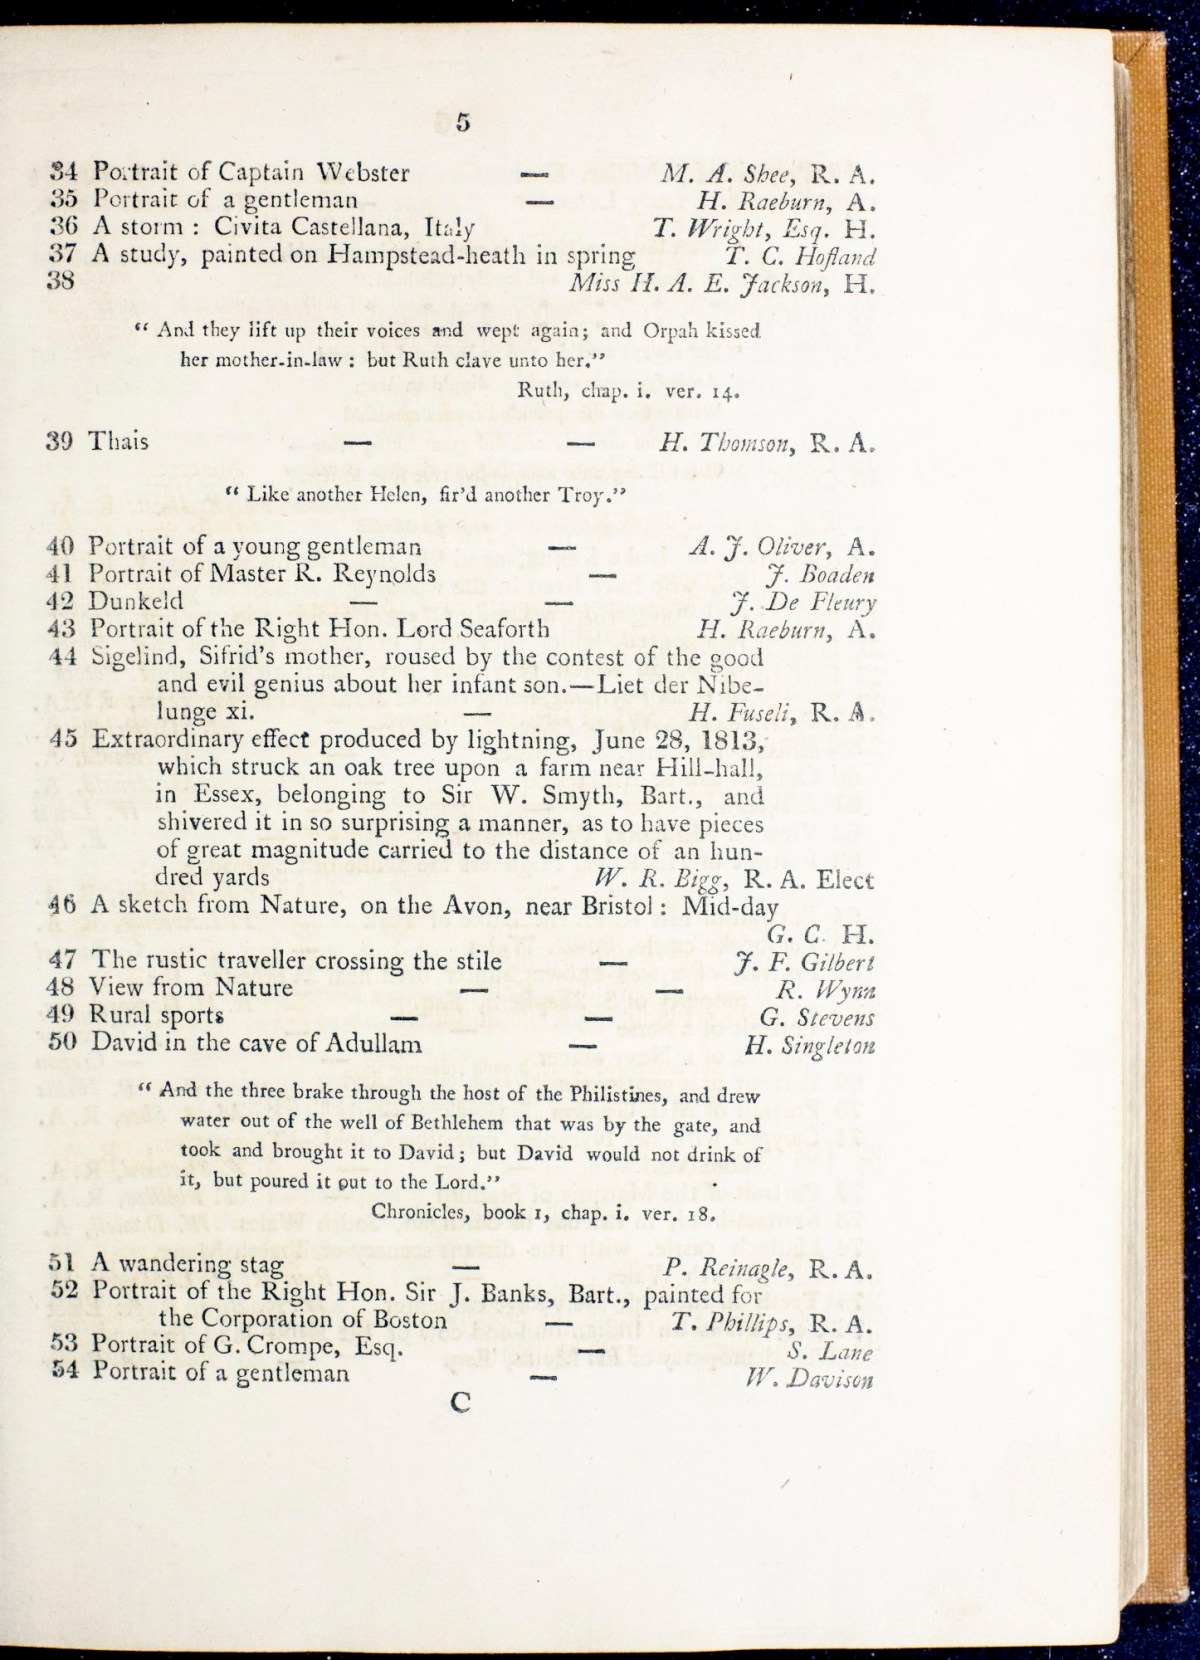 5
34 Portrait of Captain Webster — M. A. Shee, R. A.
35 Portrait of a gentleman — H. Raeburn, A.
36 A storm : Civita Castellana, Italy T. Wright, Esq. H.
37 A study, painted on Hampstead-heath in spring T. C. Hofland
38 Miss H. A. E. Jackson, H.
“ And they lift up their voices and wept again; and Orpah kissed
her mother-in-law : but Ruth clave unto her.”
Ruth, chap. i. ver. 14.
39 Thais — — H. Thomson, R. A.
“ Like another Helen, fir’d another Troy.”
40 Portrait of a young gentleman — A. J. Oliver, A.
41 Portrait of Master R. Reynolds — J. Boaden
42 Dunkeld — — J. De Fleury
43 Portrait of the Right Hon. Lord Seaforth H. Raeburn, A.
44 Sigelind, Sifrid’s mother, roused by the contest of the good
and evil genius about her infant son.—Liet der Nibe-
lunge xi. — H. Fuseli, R. A.
45 Extraordinary effect produced by lightning, June 28, 1813,
which struck an oak tree upon a farm near Hill-hall,
in Essex, belonging to Sir W. Smyth, Bart., and
shivered it in so surprising a manner, as to have pieces
of great magnitude carried to the distance of an hun-
dred yards W. R. Bigg, R. A. Elect
46 A sketch from Nature, on the Avon, near Bristol : Mid-day
G. C. H.
47 The rustic traveller crossing the stile — J. F. Gilbert
48 View from Nature — — R. Wynn
49 Rural sports — — G. Stevens
50 David in the cave of Adullam — H. Singleton
“ And the three brake through the host of the Philistines, and drew
water out of the well of Bethlehem that was by the gate, and
took and brought it to David ; but David would not drink of
it, but poured it out to the Lord.”
Chronicles, book 1, chap. i. ver. 18.
51 A wandering stag — P. Reinagle, R. A.
52 Portrait of the Right Hon. Sir J. Banks, Bart., painted for
the Corporation of Boston — T. Phillips, R. A.
53 Portrait of G. Crompe, Esq. — S. Lane
54 Portrait of a gentleman — W. Davison
C